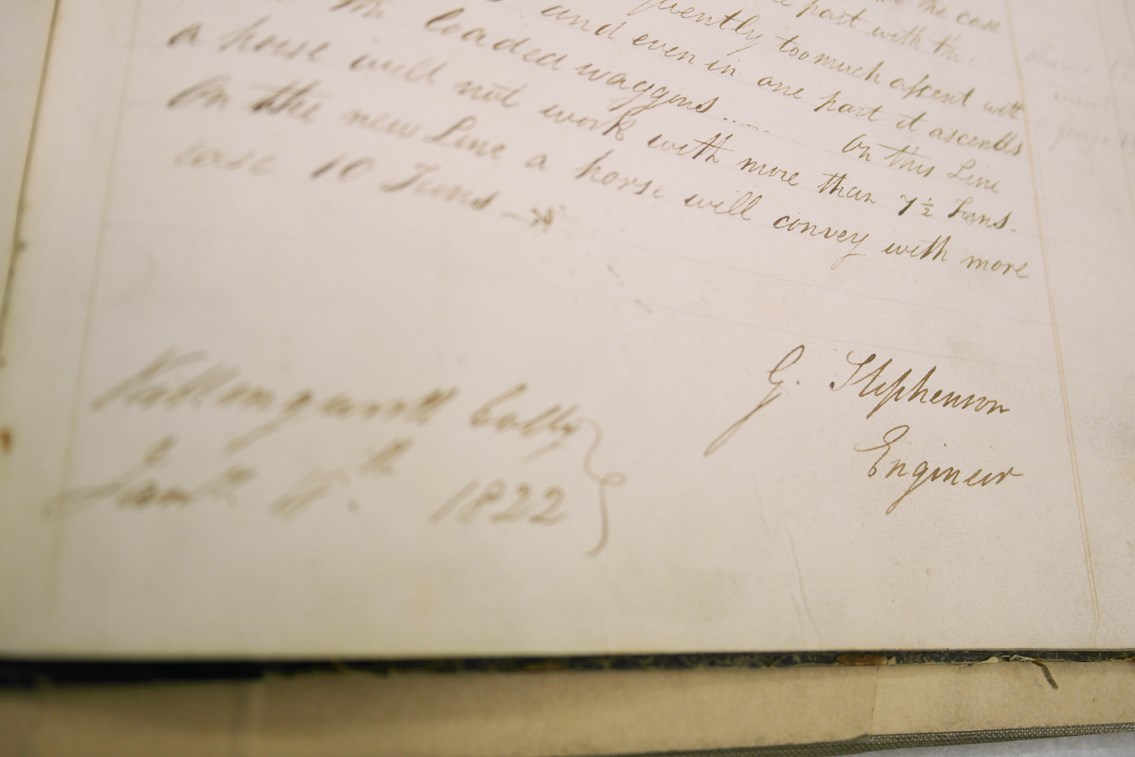 the case
part with the
quently too much ascent with
and even in one part it ascends
the loaded waggons . . . . On this Line
a horse will not work with more than 7½ Tons.
On the new Line a horse will convey with more
ease 10 Tons –
G. Stephenson
Engineer
Killingworth Colly
Jany 11th 1822